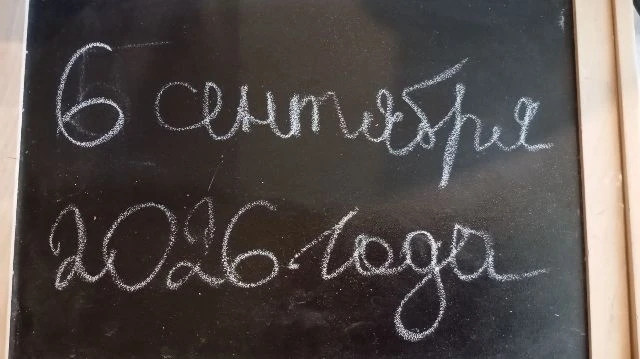 6 сентября
2026 года